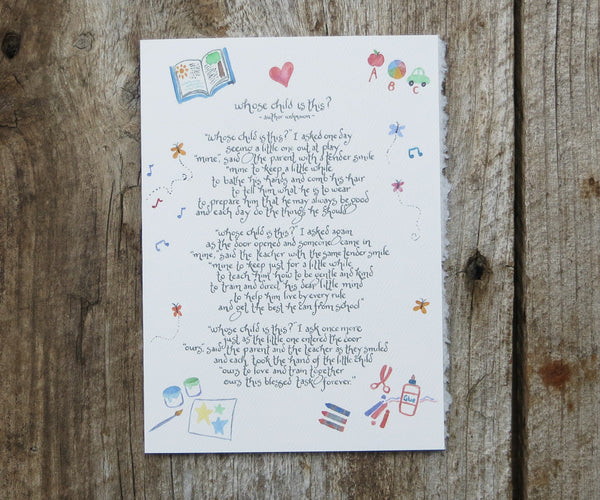 A
B
C
whose child is this?
~ author unknown ~
"whose child is this?" I asked one day
seeing a little one out at play
"mine", said the parent with a tender smile
"mine to keep a little while
to bathe his hands and comb his hair
to tell him what he is to wear
to prepare him that he may always be good
and each day do the things he should"
"whose child is this?" I asked again
as the door opened and someone came in
"mine," said the teacher with the same tender smile
"mine to keep just for a little while
to teach him how to be gentle and kind
to train and direct his dear little mind
to help him live by every rule
and get the best he can from school"
"whose child is this?" I ask once more
just as the little one entered the door
"ours," said the parent and the teacher as they smiled
and each took the hand of the little child
"ours to love and train together
ours this blessed task forever."
Glue